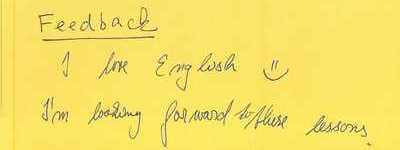 Feedback
I love English
I'm looking forward to these lessons.